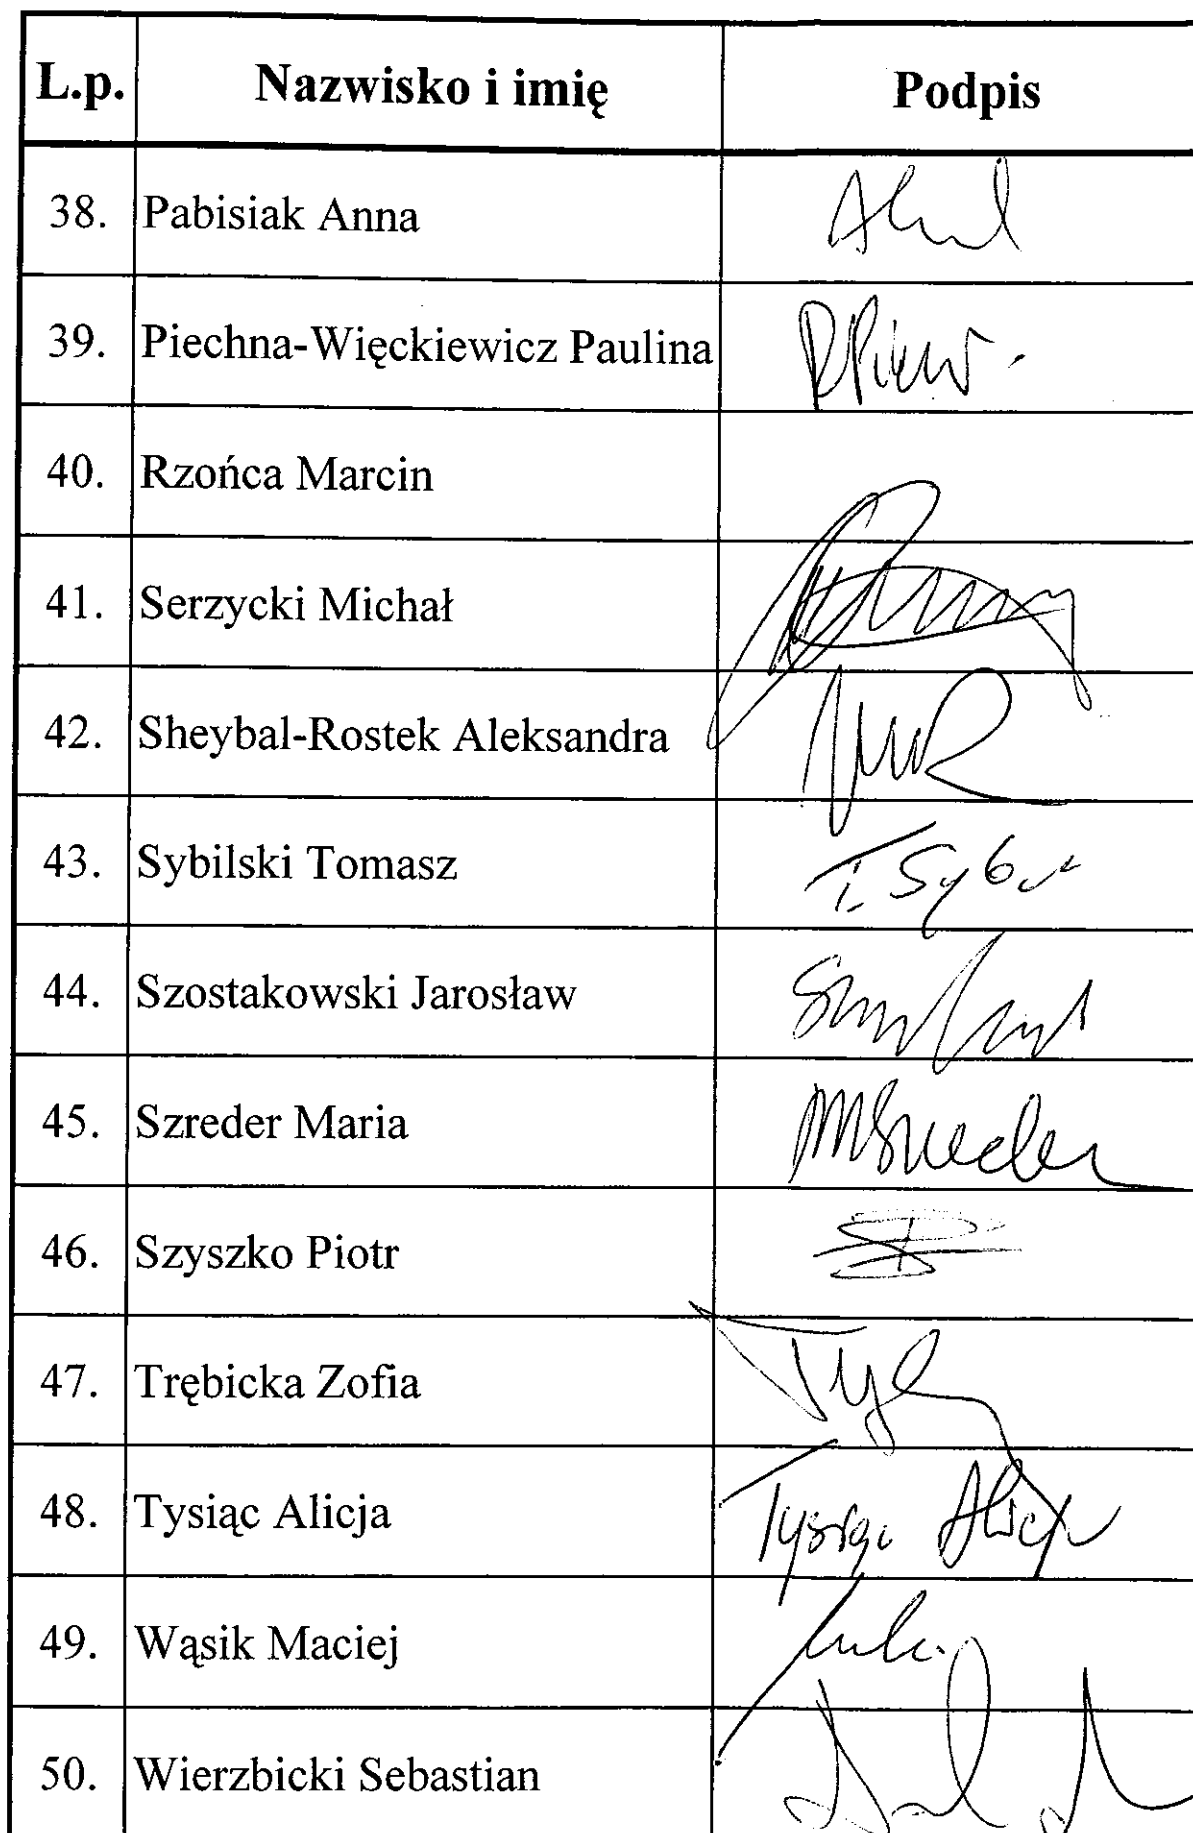 L.p. Nazwisko i imię Podpis
38. Pabisiak Anna
39. Piechna-Więckiewicz Paulina
40. Rzońca Marcin
41. Serzycki Michał
42. Sheybal-Rostek Aleksandra
43. Sybilski Tomasz
44. Szostakowski Jarosław
45. Szreder Maria MSzreder
46. Szyszko Piotr
47. Trębicka Zofia
48. Tysiąc Alicja Tysiąc Alicja
49. Wąsik Maciej
50. Wierzbicki Sebastian